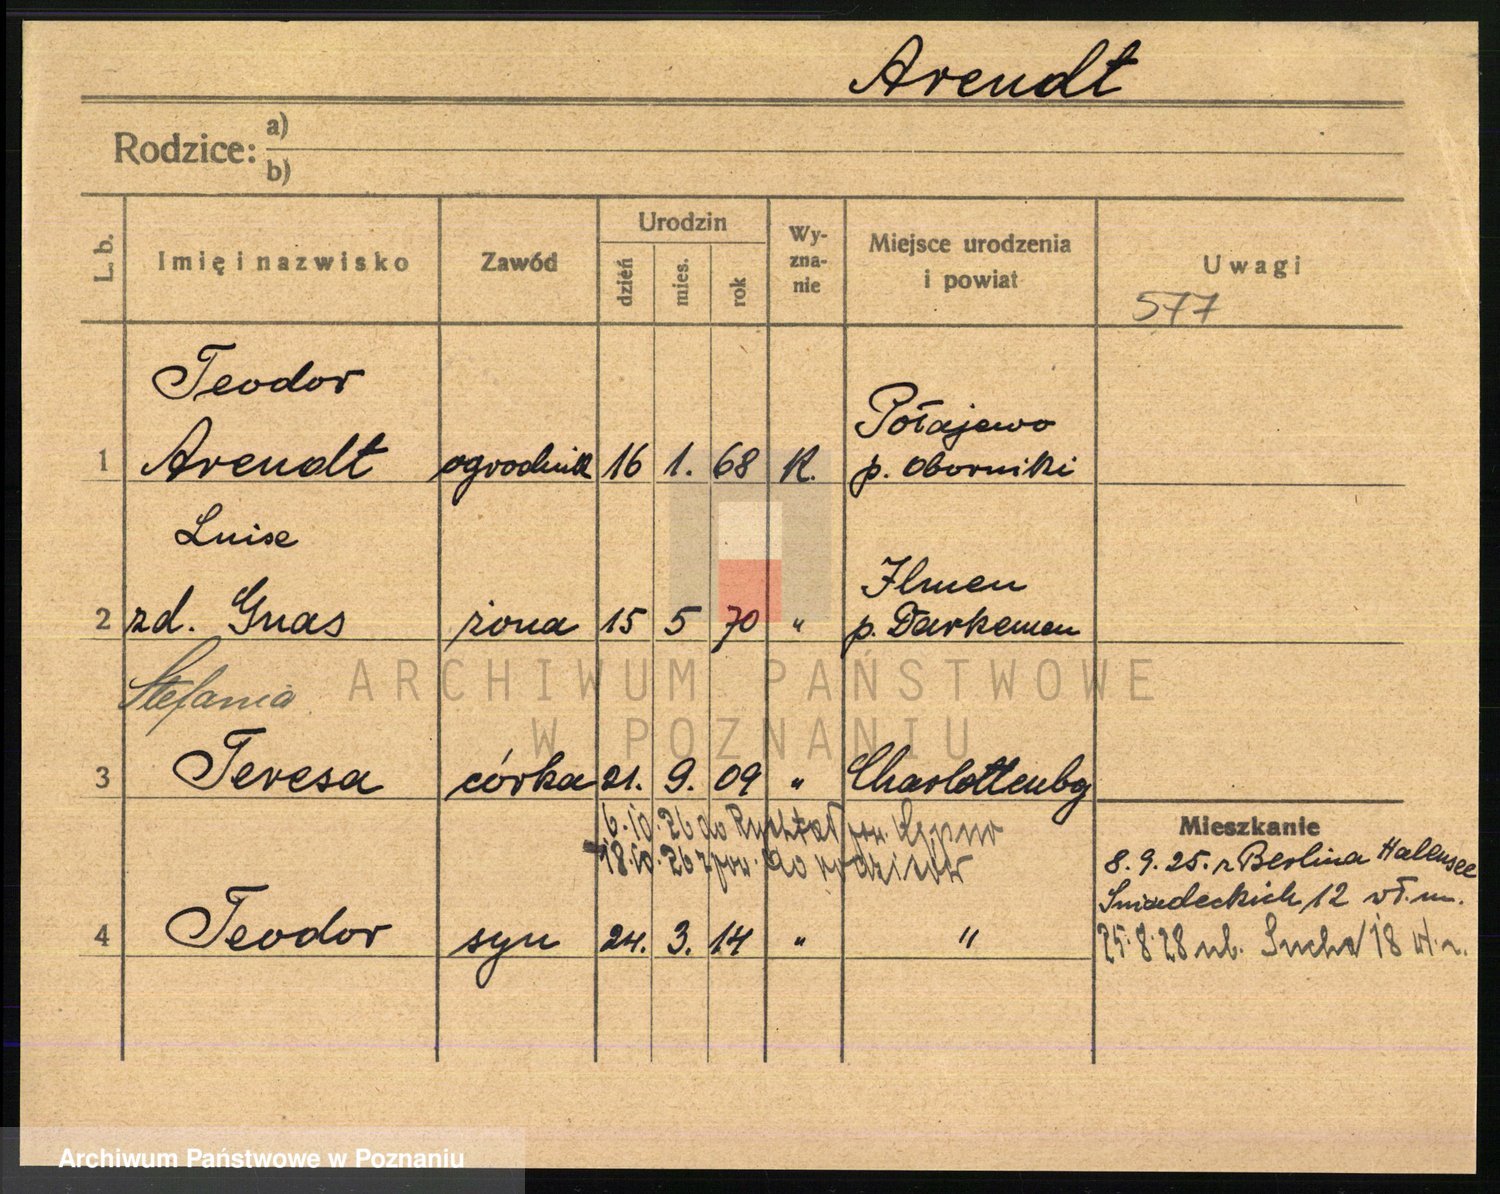 Arendt
Rodzice: a)
b)
L. b.
Imię i nazwisko
Zawód
Urodzin
dzień
mies.
rok
Wy-
zna-
nie
Miejsce urodzenia
i powiat
Uwagi
577
Teodor
Połajewo
1 Arendt ogrodnik 16 1. 68 K. p. Oborniki
Luise
Ilmen
2 zd. Gnas żona 15 5 70 " p. Darkemen
Stefania
ARCHIWUM PAŃSTWOWE
W POZNANIU
3 Teresa córka 21. 9. 09 " Charlottenbg
6.10.26 do Rychtal pow. Kępno
18.10.26 z pow. do rodziców
Mieszkanie
8.9.25. z Berlina Halensee
Śniadeckich 12 wł. m.
25.8.28 ub. Sucha 18
4 Teodor syn 24. 3. 14 " "
Archiwum Państwowe w Poznaniu